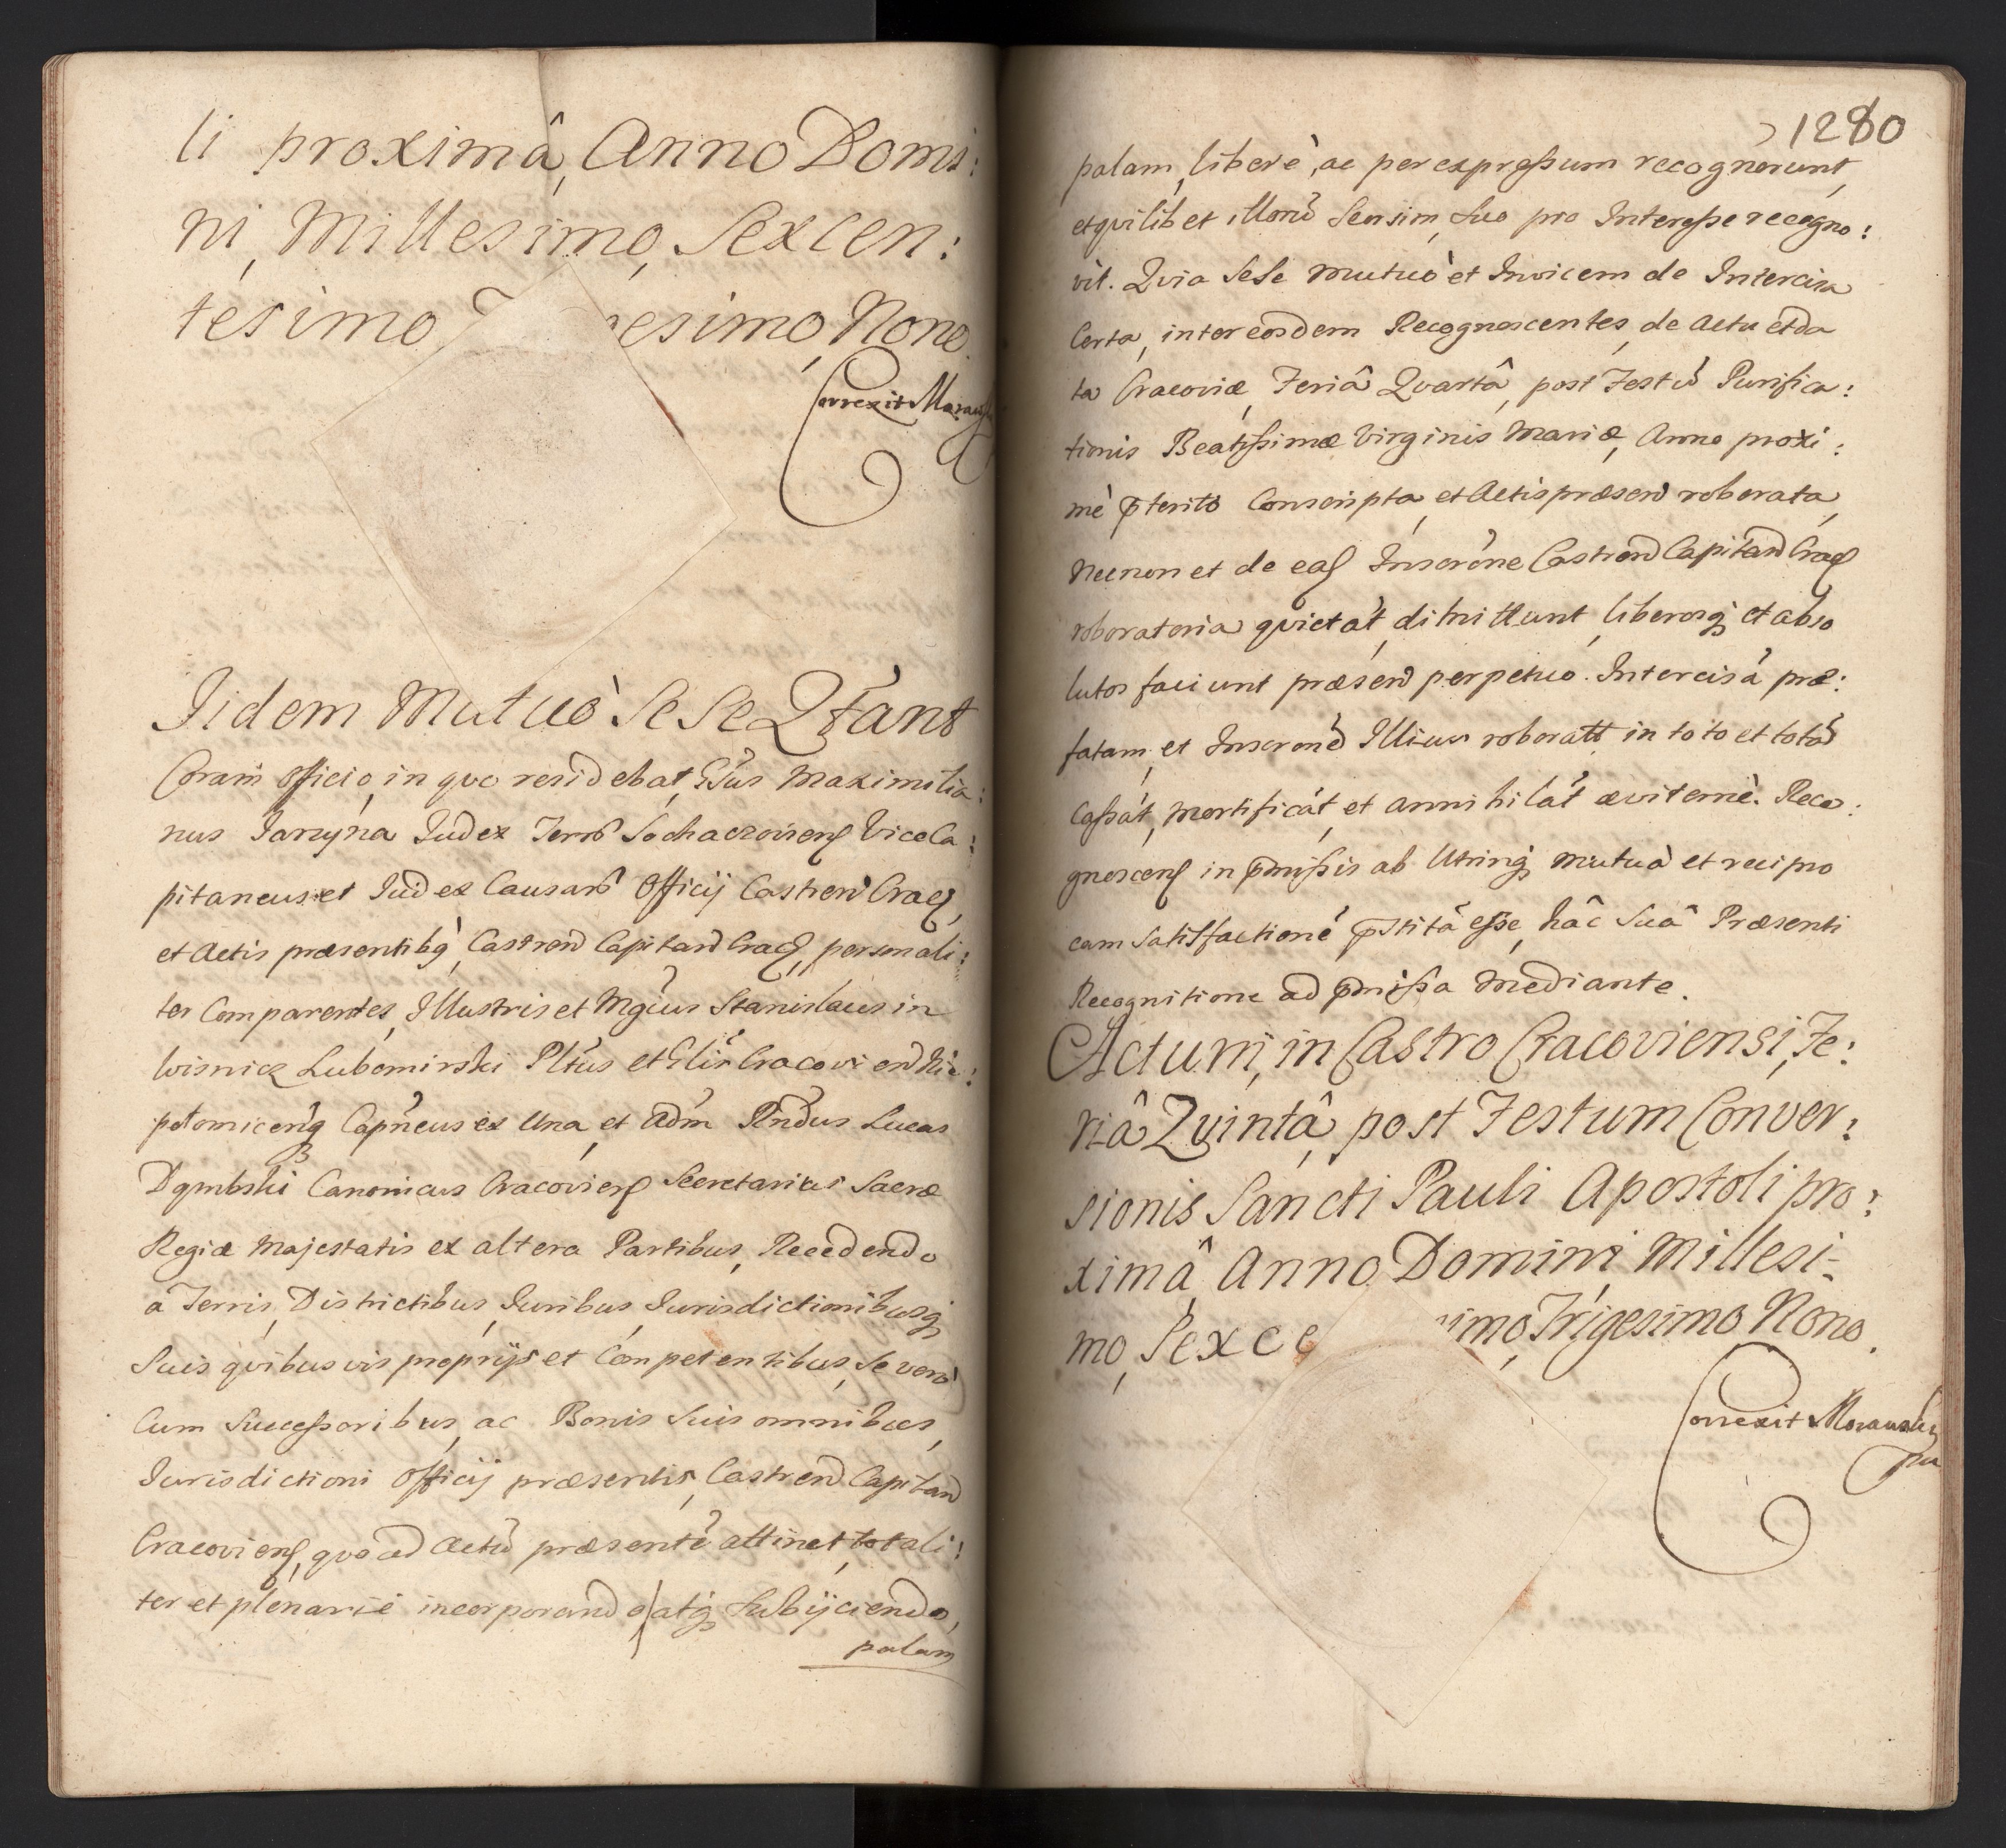 li proximâ, Anno Domi:
ni, Millesimo, Sexcen:
tesimo T esimo, Nono.
Correxit Morawsk
Iidem Mutuò Sese Qtant
Coram officio, in quo residebat, Gsus Maximilia:
nus Jarzyna Iudex Terrs Sochaczoviens Vice Ca:
pitaneus et Iudex Causars Officij Castren Crac,
et Actis præsentibq, Castren Capitan Crac, personali:
ter Comparentes, Illustris et Mgcus Stanislaus in
Wisnicz Lubomirski Pltus et Glis Cracovien Nie:
polomicenq Capneus ex Una, et Adm Rndus Lucas
Dąmbski Canonicus Cracoviens Secretarius Sacræ
Regiæ Majestatis ex altera Partibus, Recedendo
a Terris, Districtibus, Iuribus, Iurisdictionibusq
Suis quibusvis proprijs et Competentibus, Se vero
Cum Successoribus, ac Bonis Suis omnibus,
Iurisdictioni Officij præsentis, Castren Capitan
Cracoviens, quo ad Actu præsente attinet, totali:
ter et plenarie incorporando, atq Subijciendo,
palam
1280
palam, liberè, ac per expressum recognorunt,
et quilibet illoru Seorsim, Suo pro Interesse recogno:
vit. Quia Sese mutuò et Invicem de Intercisa
Certa, inter eosdem Recognoscentes, de Actu et da
ta Cracoviæ, Feriâ Quartâ, post Festu Purifica:
tionis Beatissimæ Virginis Mariæ, Anno proxi:
mè pterito Conscripta, et Actis præsen roborata,
Necnon et de eas Inscrone Castren Capitan Crac
roboratoria quietat, dimittunt, liberosq et abso
lutos faciunt præsen perpetuo. Intercisa præ:
fatam, et Inscrone Illius roborat in toto et tota
Cassat, mortificat, et annihilat æviternè. Reco:
gnoscens in pmissis ab Utrinq mutuà et recipro
cam Satisfactione pstita esse, hâc Suâ Præsenti
Recognitione ad pmissa mediante.
Actum, in Castro Cracoviensi, Fe:
riâ Quintâ, post Festum Conver:
sionis Sancti Pauli Apostoli pro:
ximâ, Anno, Domini Millesi-
mo, Sexce imo, Trigesimo Nono.
Correxit Morawsky